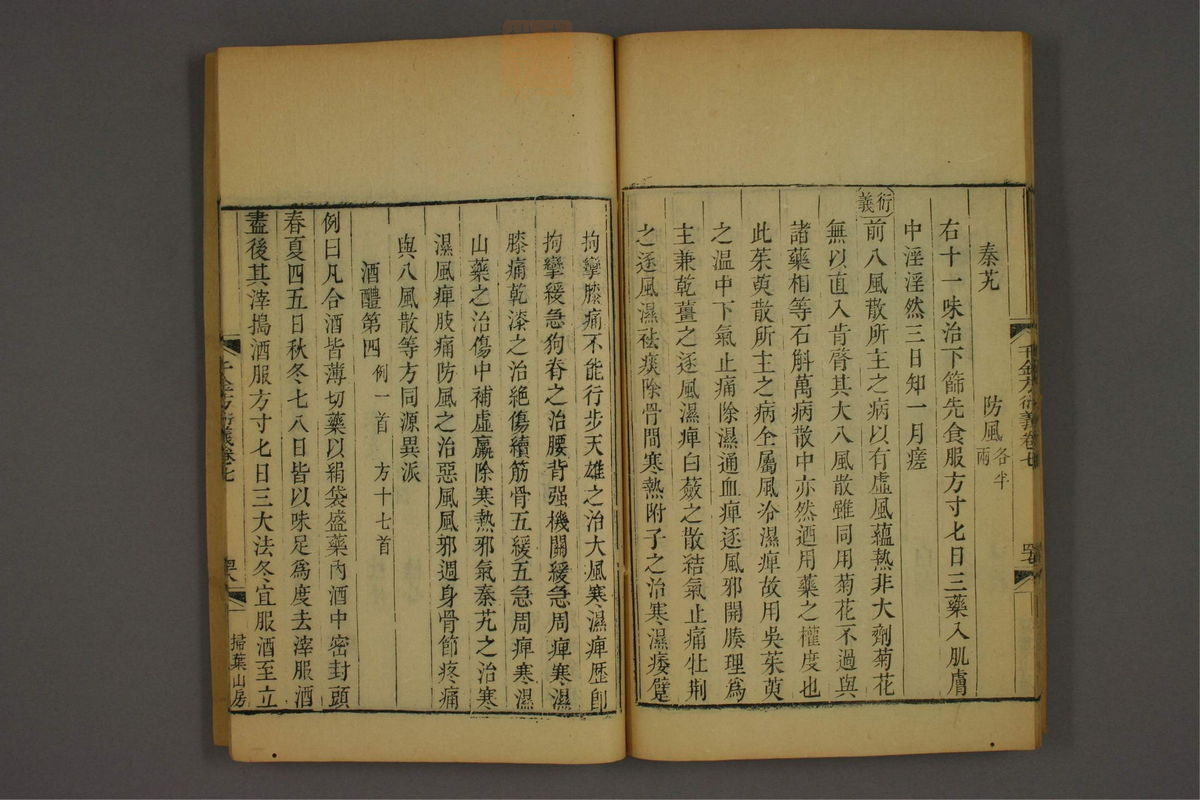 秦艽　防風各半兩
右十一味治下篩先食服方寸七日三藥入肌膚
中淫淫然三日知一月瘥
衍義
前八風散所主之病以有虛風蘊熱非大劑菊花
無以直入肯膂其大八風散雖同用菊花不過與
諸藥相等石斛萬病散中亦然廼用藥之權度也
此茱萸散所主之病全屬風冷濕痺故用吳茱萸
之溫中下氣止痛除濕通血痺逐風邪開腠理爲
主兼乾薑之逐風濕痺白蘞之散結氣止痛牡荊
之逐風濕祛痰除骨間寒熱附子之治寒濕痿躄
千金方衍義卷七
拘攣膝痛不能行步天雄之治大風寒濕痺歴卽
拘攣緩急狗脊之治腰背强機關緩急周痺寒濕
膝痛乾漆之治絶傷續筋骨五緩五急周痺寒濕
山藥之治傷中補虛羸除寒熱邪氣秦艽之治寒
濕風痺肢痛防風之治惡風風邪週身骨節疼痛
與八風散等方同源異派
酒醴第四　例一首　方十七首
例曰凡合酒皆薄切藥以絹袋盛藥內酒中密封頭
春夏四五日秋冬七八日皆以味足爲度去滓服酒
盡後其滓搗酒服方寸七日三大法冬宜服酒至立
千金方衍義卷七
掃葉山房